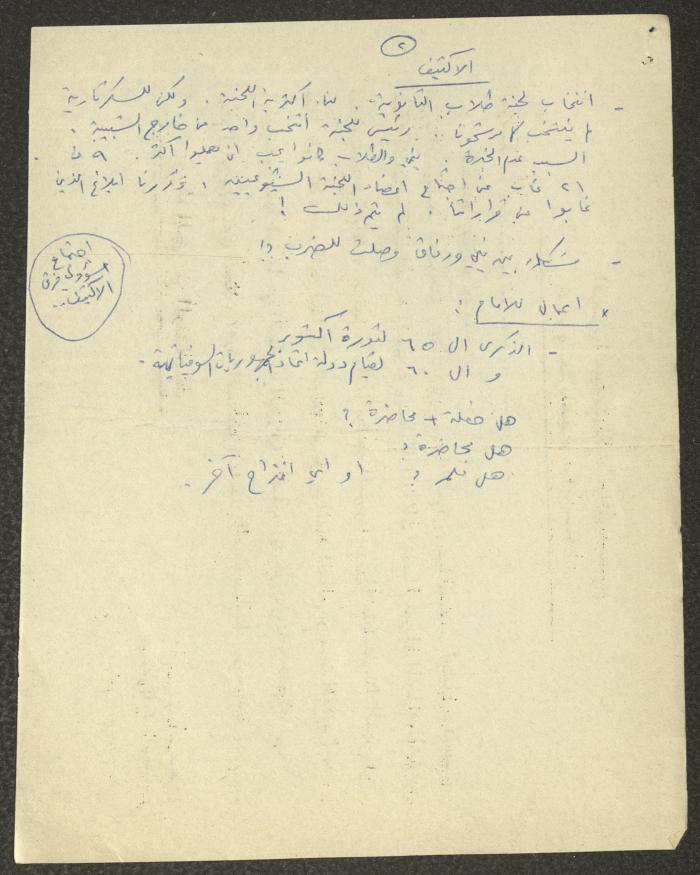 ٢
الاكتيف
- انتخاب لجنة طلاب الثانوية. لنا اكثرية اللجنة. ولكن للسكرتارية
لم ينتخب مرشحونا.. رئيس اللجنة انتخب واحد من خارج الشبيبة.
السبب عدم الخبرة. والطلاب كانوا يجب ان يعملوا اكثر. ٩ من
٢١ غاب عن اجتماع اعضاء اللجنة الشيوعيين، وقررنا ابلاغ الذين
غابوا عن قراراتنا. لم يتم ذلك!
- مشكلة بين ورفاق وصلت للضرب؟!
اجتماع
مسؤولي فرق
الاكتيف..
* اعمال للامام:
- الذكرى ال ٦٥ لثورة اكتوبر
و ال ٦٠ لقيام دولة اتحاد الجمهوريات السوفياتية.
هل حفلة + محاضرة؟
هل محاضرة؟
هل فلم؟ او اي اقتراح آخر.